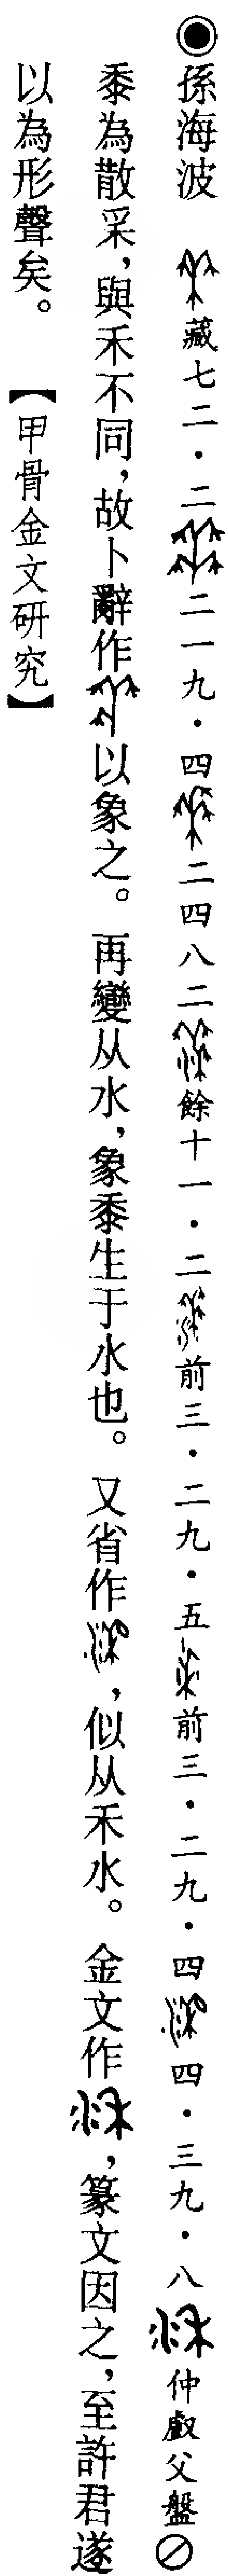 ◉孫海波　藏七二·二　二一九·四　二四八二　餘十一·二　前三·二九·五　前三·二九·四　四·三九·八　仲𠭯父盤⊘
黍為散采，與禾不同，故卜辭作　以象之。再變从水，象黍生于水也。又省作　，似从禾水。金文作　，篆文因之，至許君遂
以為形聲矣。【甲骨金文研究】